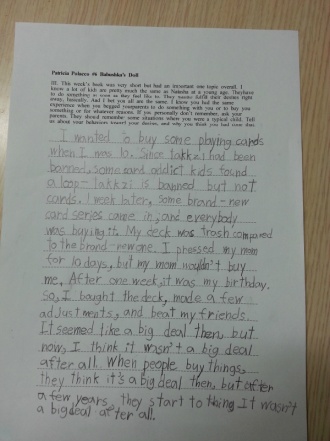 Patricia Polacco #6 Babushka's Doll
Hi. This week's book was very short but had an important one topic overall. I
know a lot of kids are pretty much the same as Natasha at a young age. They have
to do something as soon as they feel like to. They wanna fulfill their desires right
away, basically. And I bet you all are the same. I know you had the same
experience when you begged your parents to do something with you or to buy you
something or for whatever reasons. If you personally don't remember, ask your
parents. They should remember some situations when you were a typical child. Tell
us about your behaviors toward your desires, and why you think you had done this.
I wanted to buy some playing cards
when I was 10. Since takkzi had been
banned, some card addict kids found
a loop-takkzi is banned but not
cards. 1 week later, some brand-new
card series came in, and everybody
was buying it. My deck was trash compared
to the brand-new one. I pressed my mom
for 10 days, but my mom wouldn't buy
me. After one week, it was my birthday.
So, I bought the deck, made a few
adjustments, and beat my friends.
It seemed like a big deal then, but
now, I think it wasn't a big deal
after all. When people buy things,
they think it's a big deal then, but after
a few years, they start to thing It wasn't
a big deal after all.